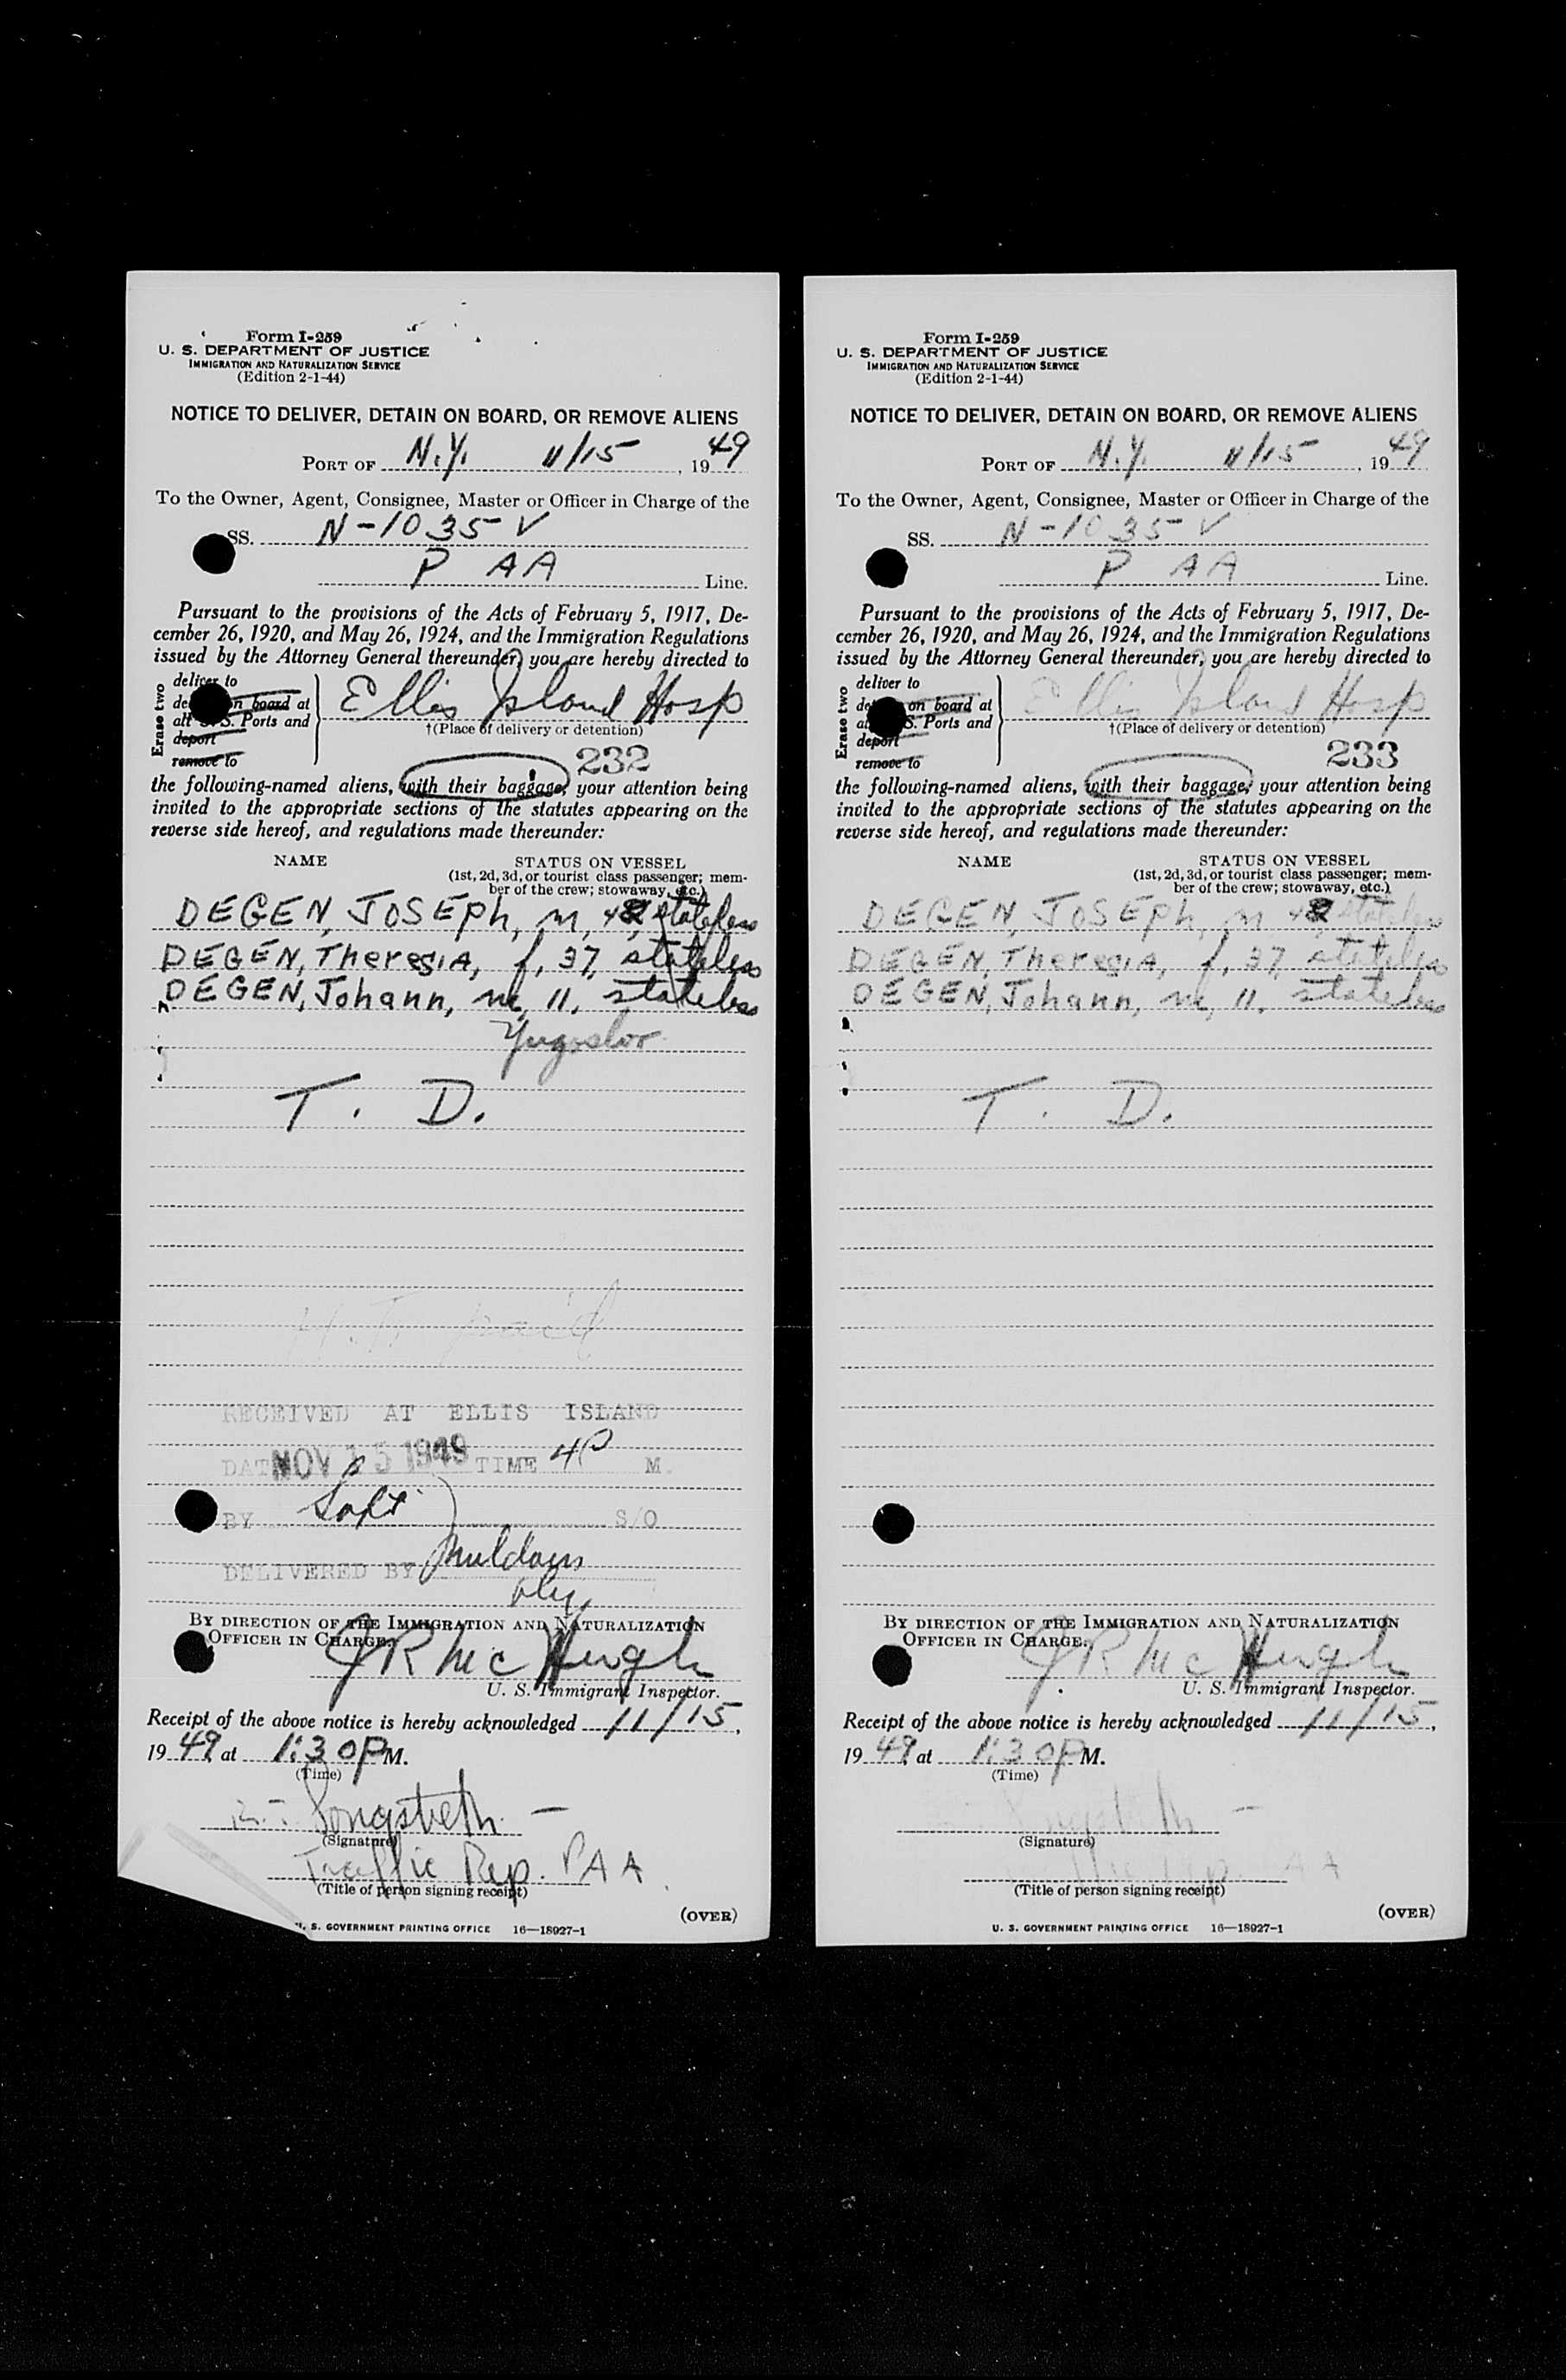 Form I-259
U. S. DEPARTMENT OF JUSTICE
IMMIGRATION AND NATURALIZATION SERVICE
(Edition 2-1-44)
NOTICE TO DELIVER, DETAIN ON BOARD, OR REMOVE ALIENS
PORT OF N.Y. 11/15, 1949
To the Owner, Agent, Consignee, Master or Officer in Charge of the
SS. N-1035-V
P AA Line.
Pursuant to the provisions of the Acts of February 5, 1917, De-
cember 26, 1920, and May 26, 1924, and the Immigration Regulations
issued by the Attorney General thereunder, you are hereby directed to
Erase two
deliver to
on board at
all U. S. Ports and
deport
remove to
Ellis Island Hosp
†(Place of delivery or detention)
232
the following-named aliens, with their baggage, your attention being
invited to the appropriate sections of the statutes appearing on the
reverse side hereof, and regulations made thereunder:
NAME STATUS ON VESSEL
(1st, 2d, 3d, or tourist class passenger; mem-
ber of the crew; stowaway, etc.)
DEGEN, JOSEPh, m, 48, stateless
DEGEN, TheresiA, f, 37, stateless
DEGEN, Johann, m, 11, stateless
Yugoslav
T. D.
H.T. paid
RECEIVED AT ELLIS ISLAND
DATE NOV 15 1949 TIME 4P M.
BY S/O
DELIVERED BY
BY DIRECTION OF THE IMMIGRATION AND NATURALIZATION
OFFICER IN CHARGE.
J R McHugh
U. S. Immigrant Inspector.
Receipt of the above notice is hereby acknowledged 11/15,
1949, at 1:30 P M.
(Time)
Longstreth
(Signature)
Traffic Rep. PAA
(Title of person signing receipt)
(OVER)
U. S. GOVERNMENT PRINTING OFFICE 16—18927-1
Form I-259
U. S. DEPARTMENT OF JUSTICE
IMMIGRATION AND NATURALIZATION SERVICE
(Edition 2-1-44)
NOTICE TO DELIVER, DETAIN ON BOARD, OR REMOVE ALIENS
PORT OF N.Y. 11/15, 1949
To the Owner, Agent, Consignee, Master or Officer in Charge of the
SS. N-1035-V
P AA Line.
Pursuant to the provisions of the Acts of February 5, 1917, De-
cember 26, 1920, and May 26, 1924, and the Immigration Regulations
issued by the Attorney General thereunder, you are hereby directed to
Erase two
deliver to
on board at
S. Ports and
deport
remove to
Ellis Island Hosp
†(Place of delivery or detention)
233
the following-named aliens, with their baggage, your attention being
invited to the appropriate sections of the statutes appearing on the
reverse side hereof, and regulations made thereunder:
NAME STATUS ON VESSEL
(1st, 2d, 3d, or tourist class passenger; mem-
ber of the crew; stowaway, etc.)
DEGEN, JOSEPh, m, 48, stateless
DEGEN, TheresiA, f, 37, stateless
DEGEN, Johann, m, 11, stateless
T. D.
BY DIRECTION OF THE IMMIGRATION AND NATURALIZATION
OFFICER IN CHARGE.
J R McHugh
U. S. Immigrant Inspector.
Receipt of the above notice is hereby acknowledged 11/15,
1949, at 1:30 P M.
(Time)
(Signature)
(Title of person signing receipt)
(OVER)
U. S. GOVERNMENT PRINTING OFFICE 16—18927-1